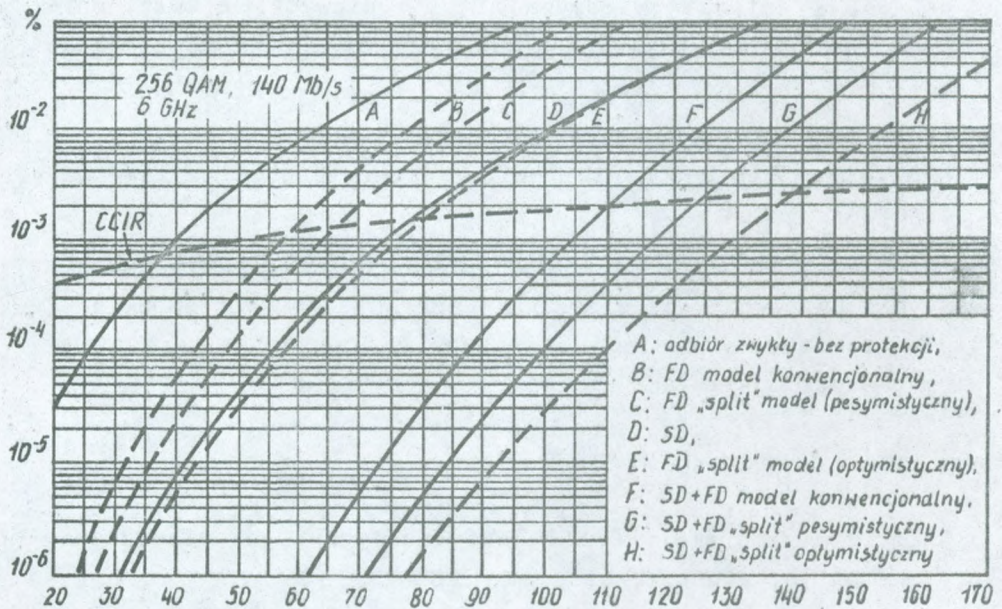 %
256 QAM, 140 Mb/s
6 GHz
10⁻²
A B C D E F G H
10⁻³
CCIR
10⁻⁴
A: odbiór zwykły - bez protekcji,
B: FD model konwencjonalny,
C: FD „split" model (pesymistyczny),
10⁻⁵
D: SD,
E: FD „split" model (optymistyczny),
F: SD+FD model konwencjonalny,
G: SD+FD „split" pesymistyczny,
10⁻⁶
H: SD+FD „split" optymistyczny
20 30 40 50 60 70 80 90 100 110 120 130 140 150 160 170